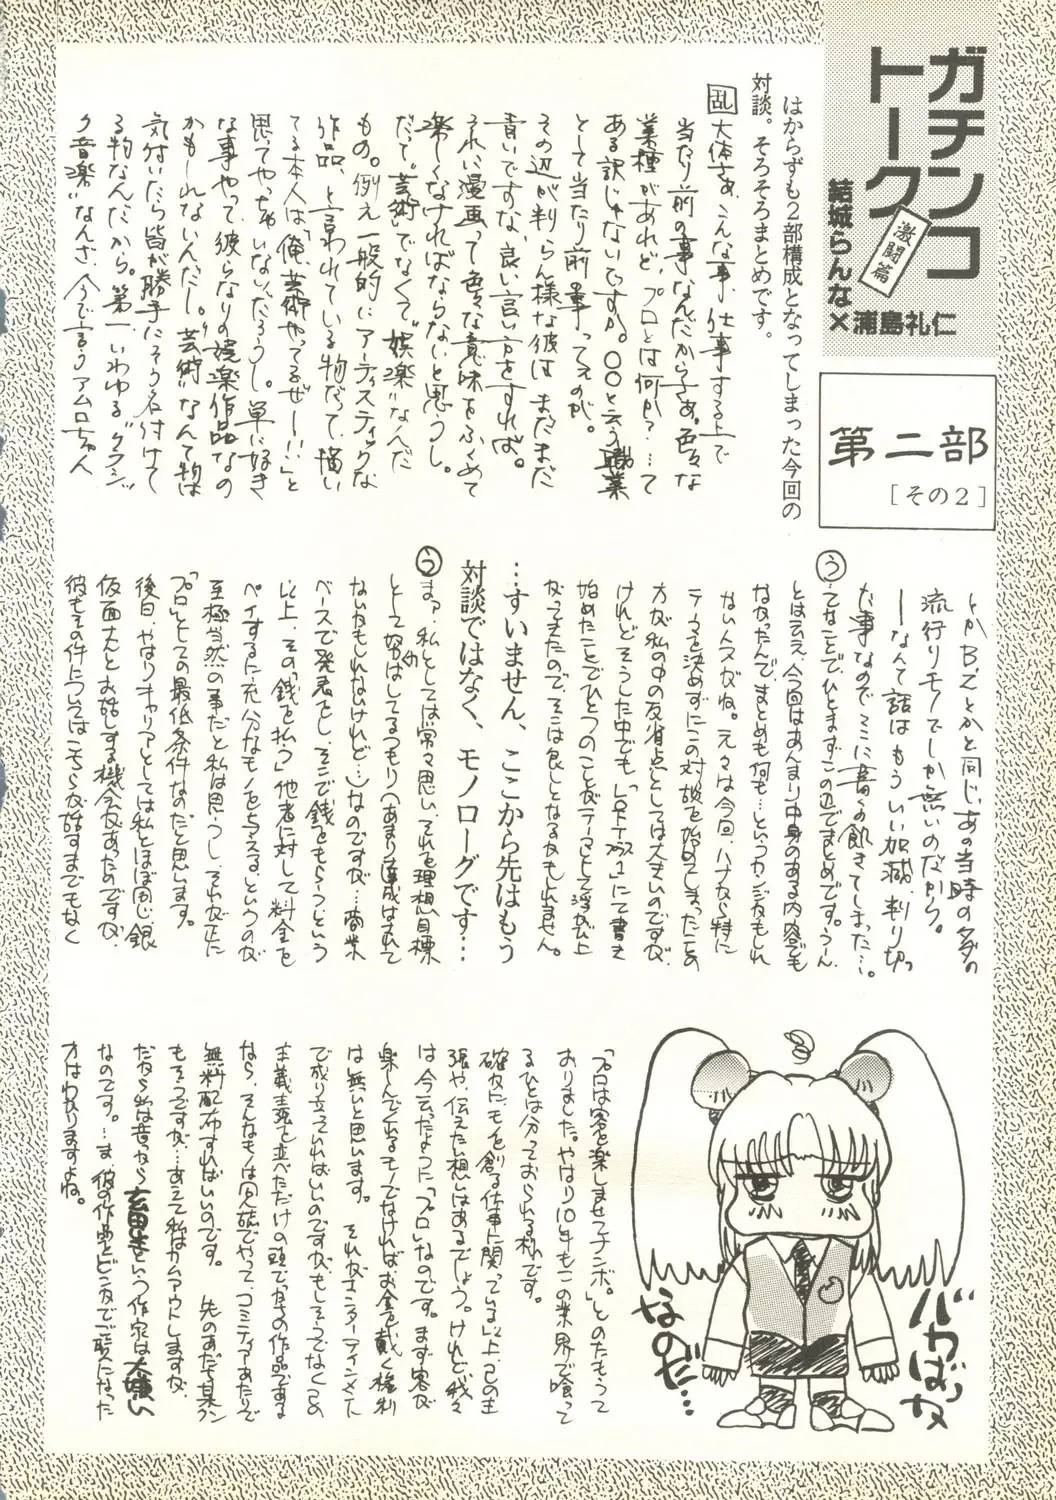 ガチンコ
トーク
激闘篇
結城らんな×浦島礼仁
第二部
[その2]
はからずも2部構成となってしまった今回の
対談。そろそろまとめです。
乱 大体さぁ、こんな事、仕事する上で
当たり前の事なんだからさぁ。色々な
業種があれど、プロとは何か?…て
ある訳じゃないですか。○○と云う職業
として当たり前の事ってのが。
その辺が判らん様な彼はまだまだ
青いですな、良い言い方をすれば。
うれい漫画って色々な意味をふくめて
楽しくなければならないと思うし。
だって"芸術"でなくて"娯楽"なんだ
もの。例え一般的にアーティスティックな
作品、と言われている物だって、描い
てる本人は、「俺、芸術やってるぜー!!」と
思ってやっちゃいないだろうし。単に好き
な事やって、彼らなりの娯楽作品なの
かもしれないんだし。"芸術"なんて物は
気付いたら皆が勝手にそう名付けて
る物なんだから。第一、いわゆる"クラシッ
ク音楽"なんざ、今で言うアムロちゃん
とかB'zとかと同じ、あの当時のタダの
流行りモノでしか無いのだから。
―なんて話はもういい加減、判り切っ
た事なので
う てなことでひとまずこの辺でまとめです。うーん、
とは云え、今回はあんまり中身のある内容でも
なかったんで、まとめも何も…というカンジかもしれ
ない人々がね。元々は今回、ハナから特に
テーマを決めずにこの対談を始めてしまったことの
方が私の中の反省点としては大きいのですが、
けれどそうした中でも、
始めたことでひとつのこと長テーマとして浮かび上
がってきたので、そこは良しとなるかもしれません。
…すいません、ここから先はもう
対談ではなく、モノローグです…
う まァ、私としては常々思い、それを理想・目標
として努めはしてるつもり(あまり達成はされて
ないかもしれないけれど…)なのですが…商業
ベースで発表をし、そこで銭をもらうという
以上、その「銭を払う」他者に対して料金を
ペイするに充分なモノを与えるというのが
至極当然の事だと私は思うし、それが正に
「プロ」としての最低条件なのだと思います。
後日、やはりキャリアとしては私とほぼ同じ、銀
仮面さんとお話しする機会があったのですが、
彼もその件についてはこちらが話すまでもなく
「プロは客を楽しませてナンボ。」とのたもうて
おりました。やはり10年もこの業界で喰って
るひとは分っておられる様です。
確かにモノを創る仕事に関っている以上、己の主
張や、伝えたい想いはあるでしょう。けれど我々
は今云ったように「プロ」なのです。まず客が
楽しんでくれるモノでなければお金を戴く権利
は無いと思います。それがエンターテインメント
で成り立っていればいいのですが、もしそうでなくこの
主義主張を並べただけの頭でっかちの作品である
なら、そんなモノは同人誌でやって、コミティアあたりで
無料配布すればいいのです。先のあだち某クン
もそうですが…あえて私はカムアウトしますが、
だから私は昔から という作家は大嫌い
なのです。…ま、彼の作品をどこかでご覧になった
方はわかりますよね。
バカばっか
なのだ…